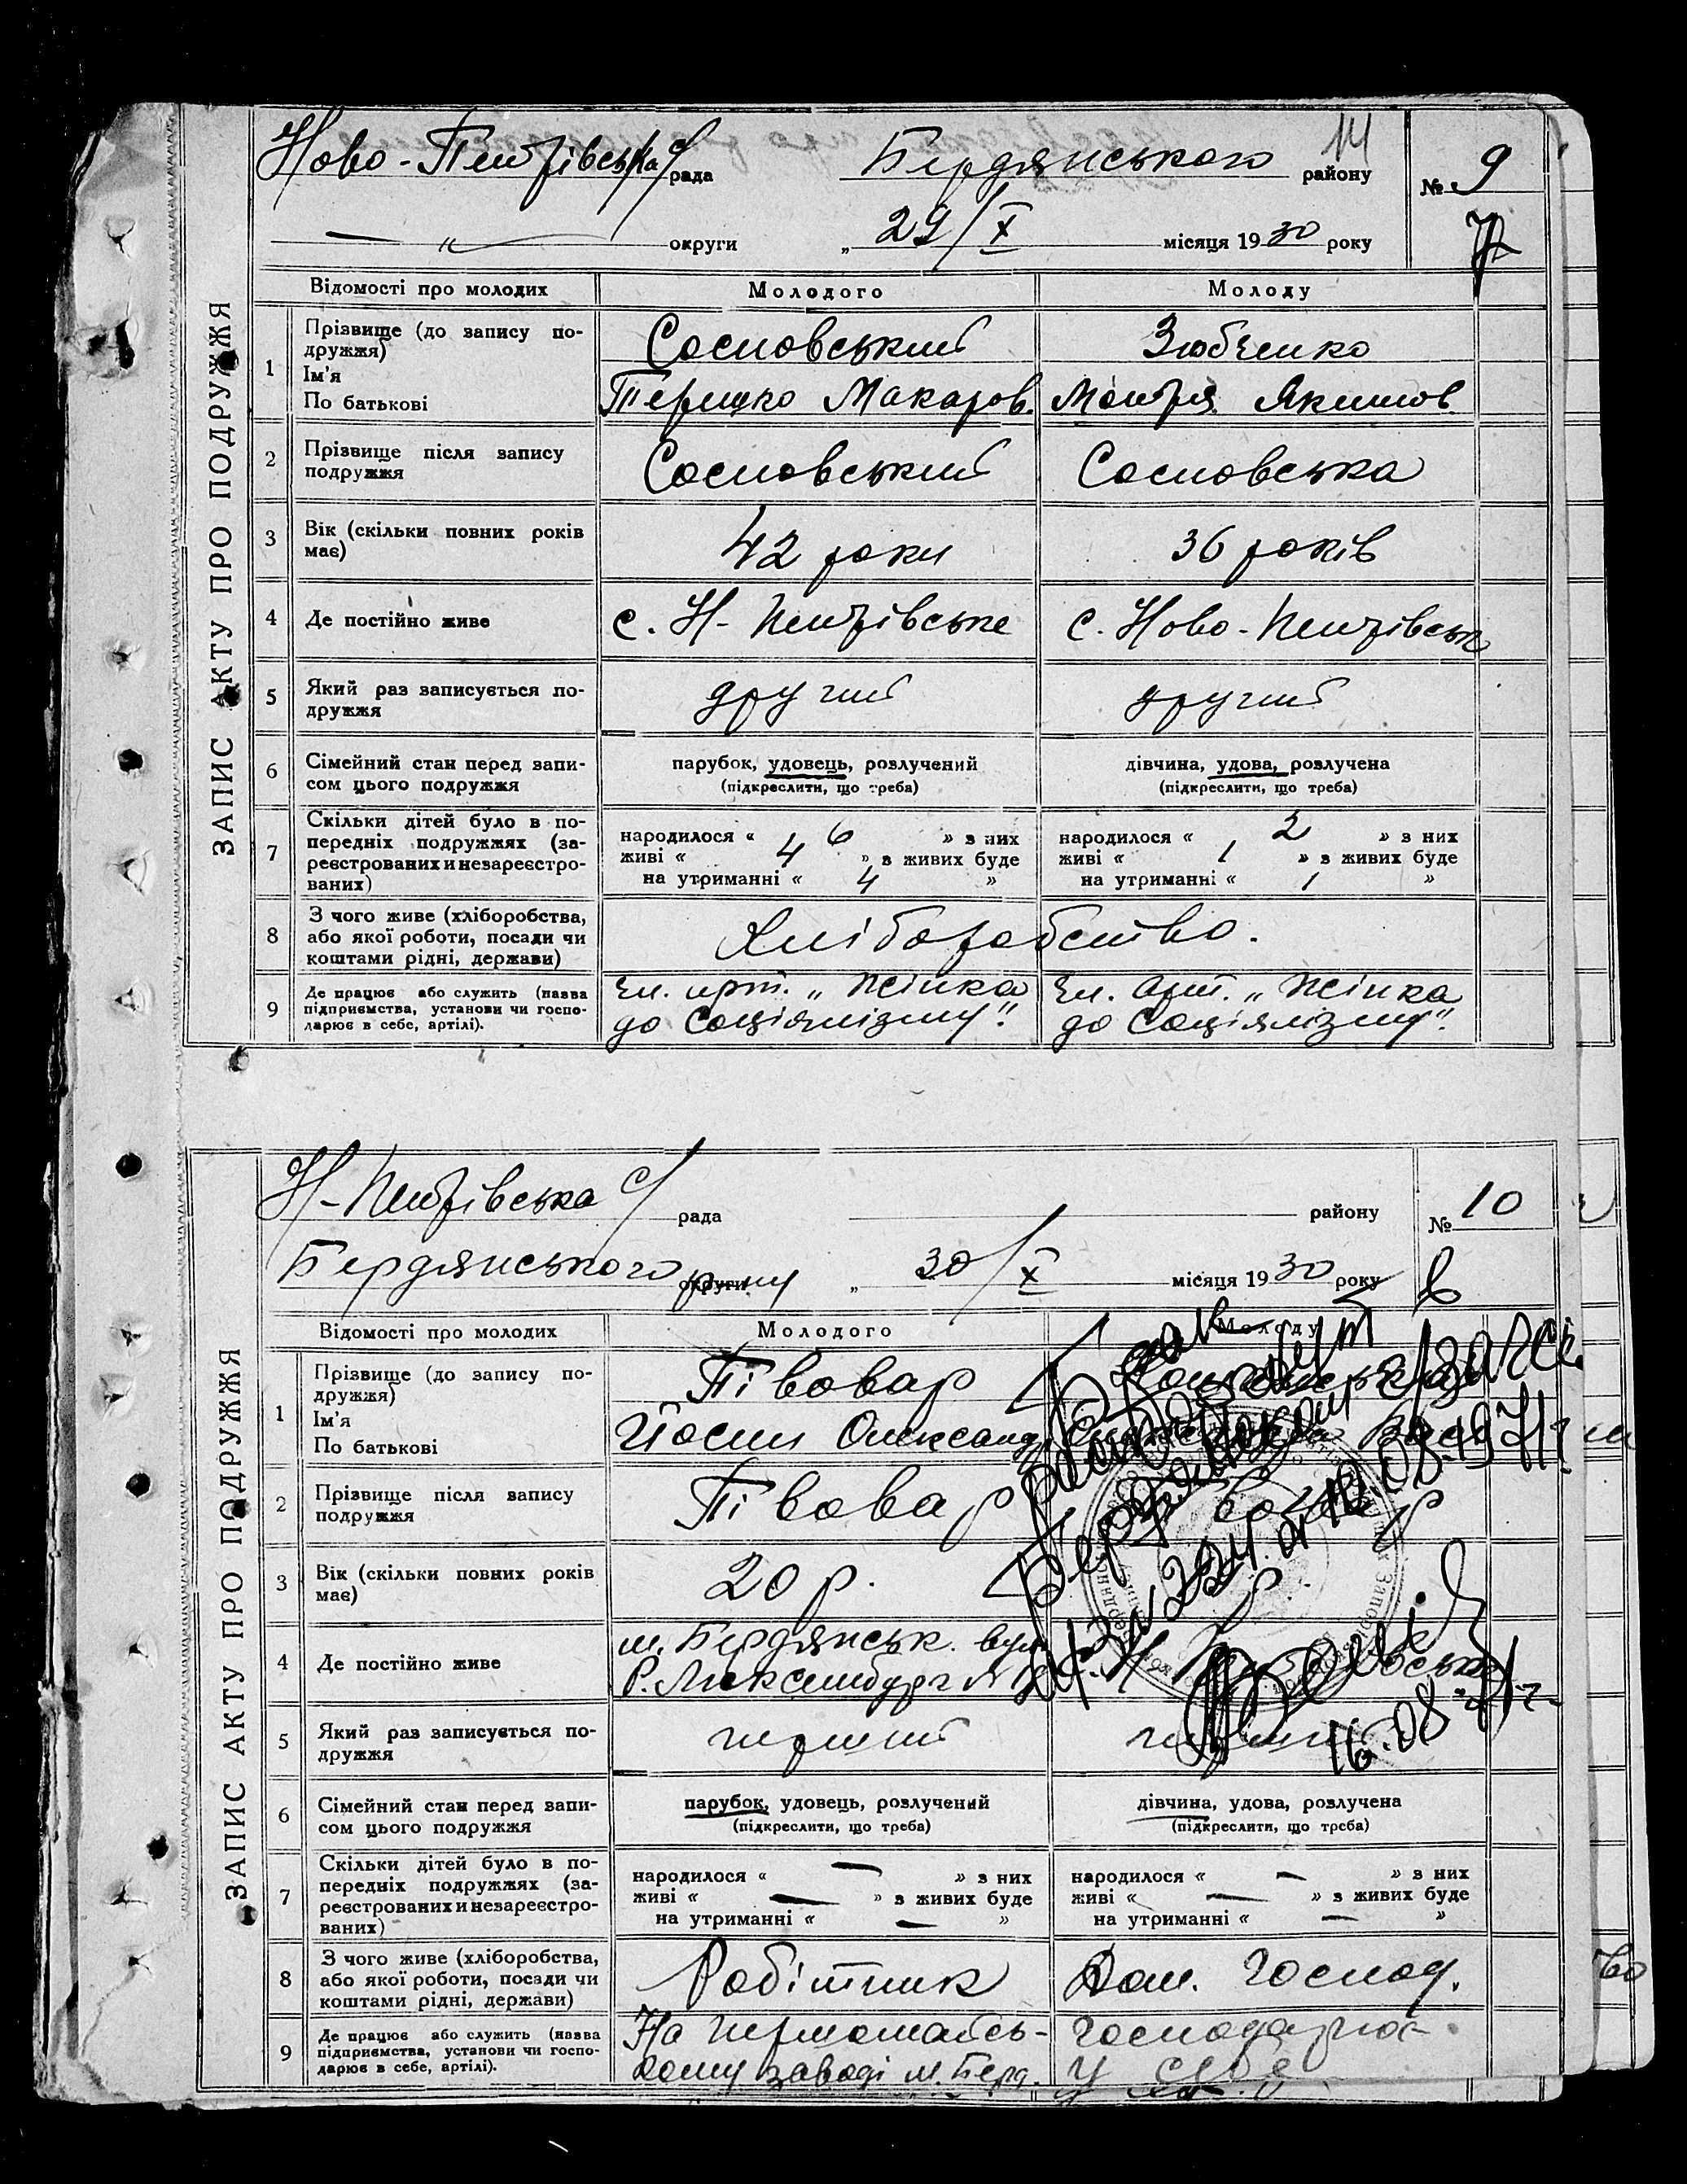 14
Ново-Петрівська с/рада Бердянського району № 9
— „ — округи „ 29/X місяця 1930 року 7
ЗАПИС АКТУ ПРО ПОДРУЖЖЯ
Відомості про молодих Молодого Молоду
1 Прізвище (до запису по-
дружжя) Сосновський Зюбченко
Ім'я
По батькові Терешко Макаров. Мотря Якимов.
2 Прізвище після запису
подружжя Сосновський Сосновська
3 Вік (скільки повних років
має) 42 роки 36 років
4 Де постійно живе с. Н-Петрівське с. Ново-Петрівськ
5 Який раз записується по-
дружжя другий другий
6 Сімейний стан перед запи-
сом цього подружжя парубок, удовець, розлучений дівчина, удова, розлучена
(підкреслити, що треба) (підкреслити, що треба)
7 Скільки дітей було в по-
передніх подружжях (за-
реєстрованих и незареєстро-
ваних)
народилося « 6 » з них народилося « 2 » з них
живі « 4 » з живих буде живі « 1 » з живих буде
на утриманні « 4 » на утриманні « 1 »
8 З чого живе (хліборобства,
або якої роботи, посади чи
коштами рідні, держави) Хліборобство.
9 Де працює або служить (назва
підприємства, установи чи госпо-
дарює в себе, артілі).
Чл. арт. „Жінка Чл. арт. „Жінка
до Соціялізму". до Соціялізму".
Н-Петрівська с/рада району № 10
Бердянського р-ну округи „ 30/X місяця 1930 року 8
ЗАПИС АКТУ ПРО ПОДРУЖЖЯ
Відомості про молодих Молодого Молоду
1 Прізвище (до запису по-
дружжя) Півовар
Ім'я
По батькові Йосип Олександ
2 Прізвище після запису
подружжя Півовар
3 Вік (скільки повних років
має) 20 р.
4 Де постійно живе м. Бердянськ. вул.
Р. Люксембург №
16.08.
5 Який раз записується по-
дружжя перший перший
6 Сімейний стан перед запи-
сом цього подружжя парубок, удовець, розлучений дівчина, удова, розлучена
(підкреслити, що треба) (підкреслити, що треба)
7 Скільки дітей було в по-
передніх подружжях (за-
реєстрованих и незареєстро-
ваних)
народилося « — » з них народилося « — » з них
живі « — » з живих буде живі « — » з живих буде
на утриманні « — » на утриманні « — »
8 З чого живе (хліборобства,
або якої роботи, посади чи
коштами рідні, держави) Робітник Дом. Господ.
9 Де працює або служить (назва
підприємства, установи чи госпо-
дарює в себе, артілі).
На першомайсь- господарює
кому заводі м. Берд. у себе